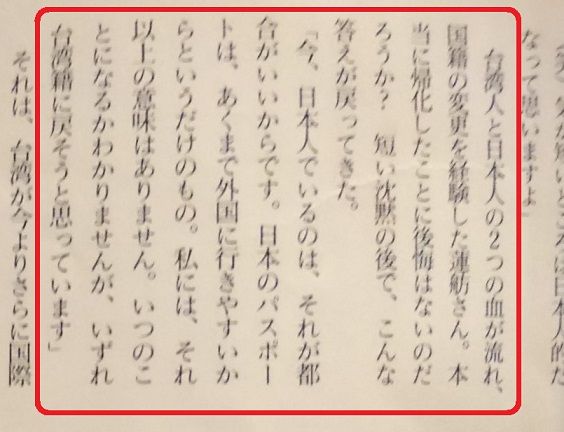 なって思いますよ」
台湾人と日本人の2つの血が流れ、
国籍の変更を経験した蓮舫さん。本
当に帰化したことに後悔はないのだ
ろうか？　短い沈黙の後で、こんな
答えが戻ってきた。
「今、日本人でいるのは、それが都
合がいいからです。日本のパスポー
トは、あくまで外国に行きやすいか
らというだけのもの。私には、それ
以上の意味はありません。いつのこ
とになるかわかりませんが、いずれ
台湾籍に戻そうと思っています」
それは、台湾が今よりさらに国際